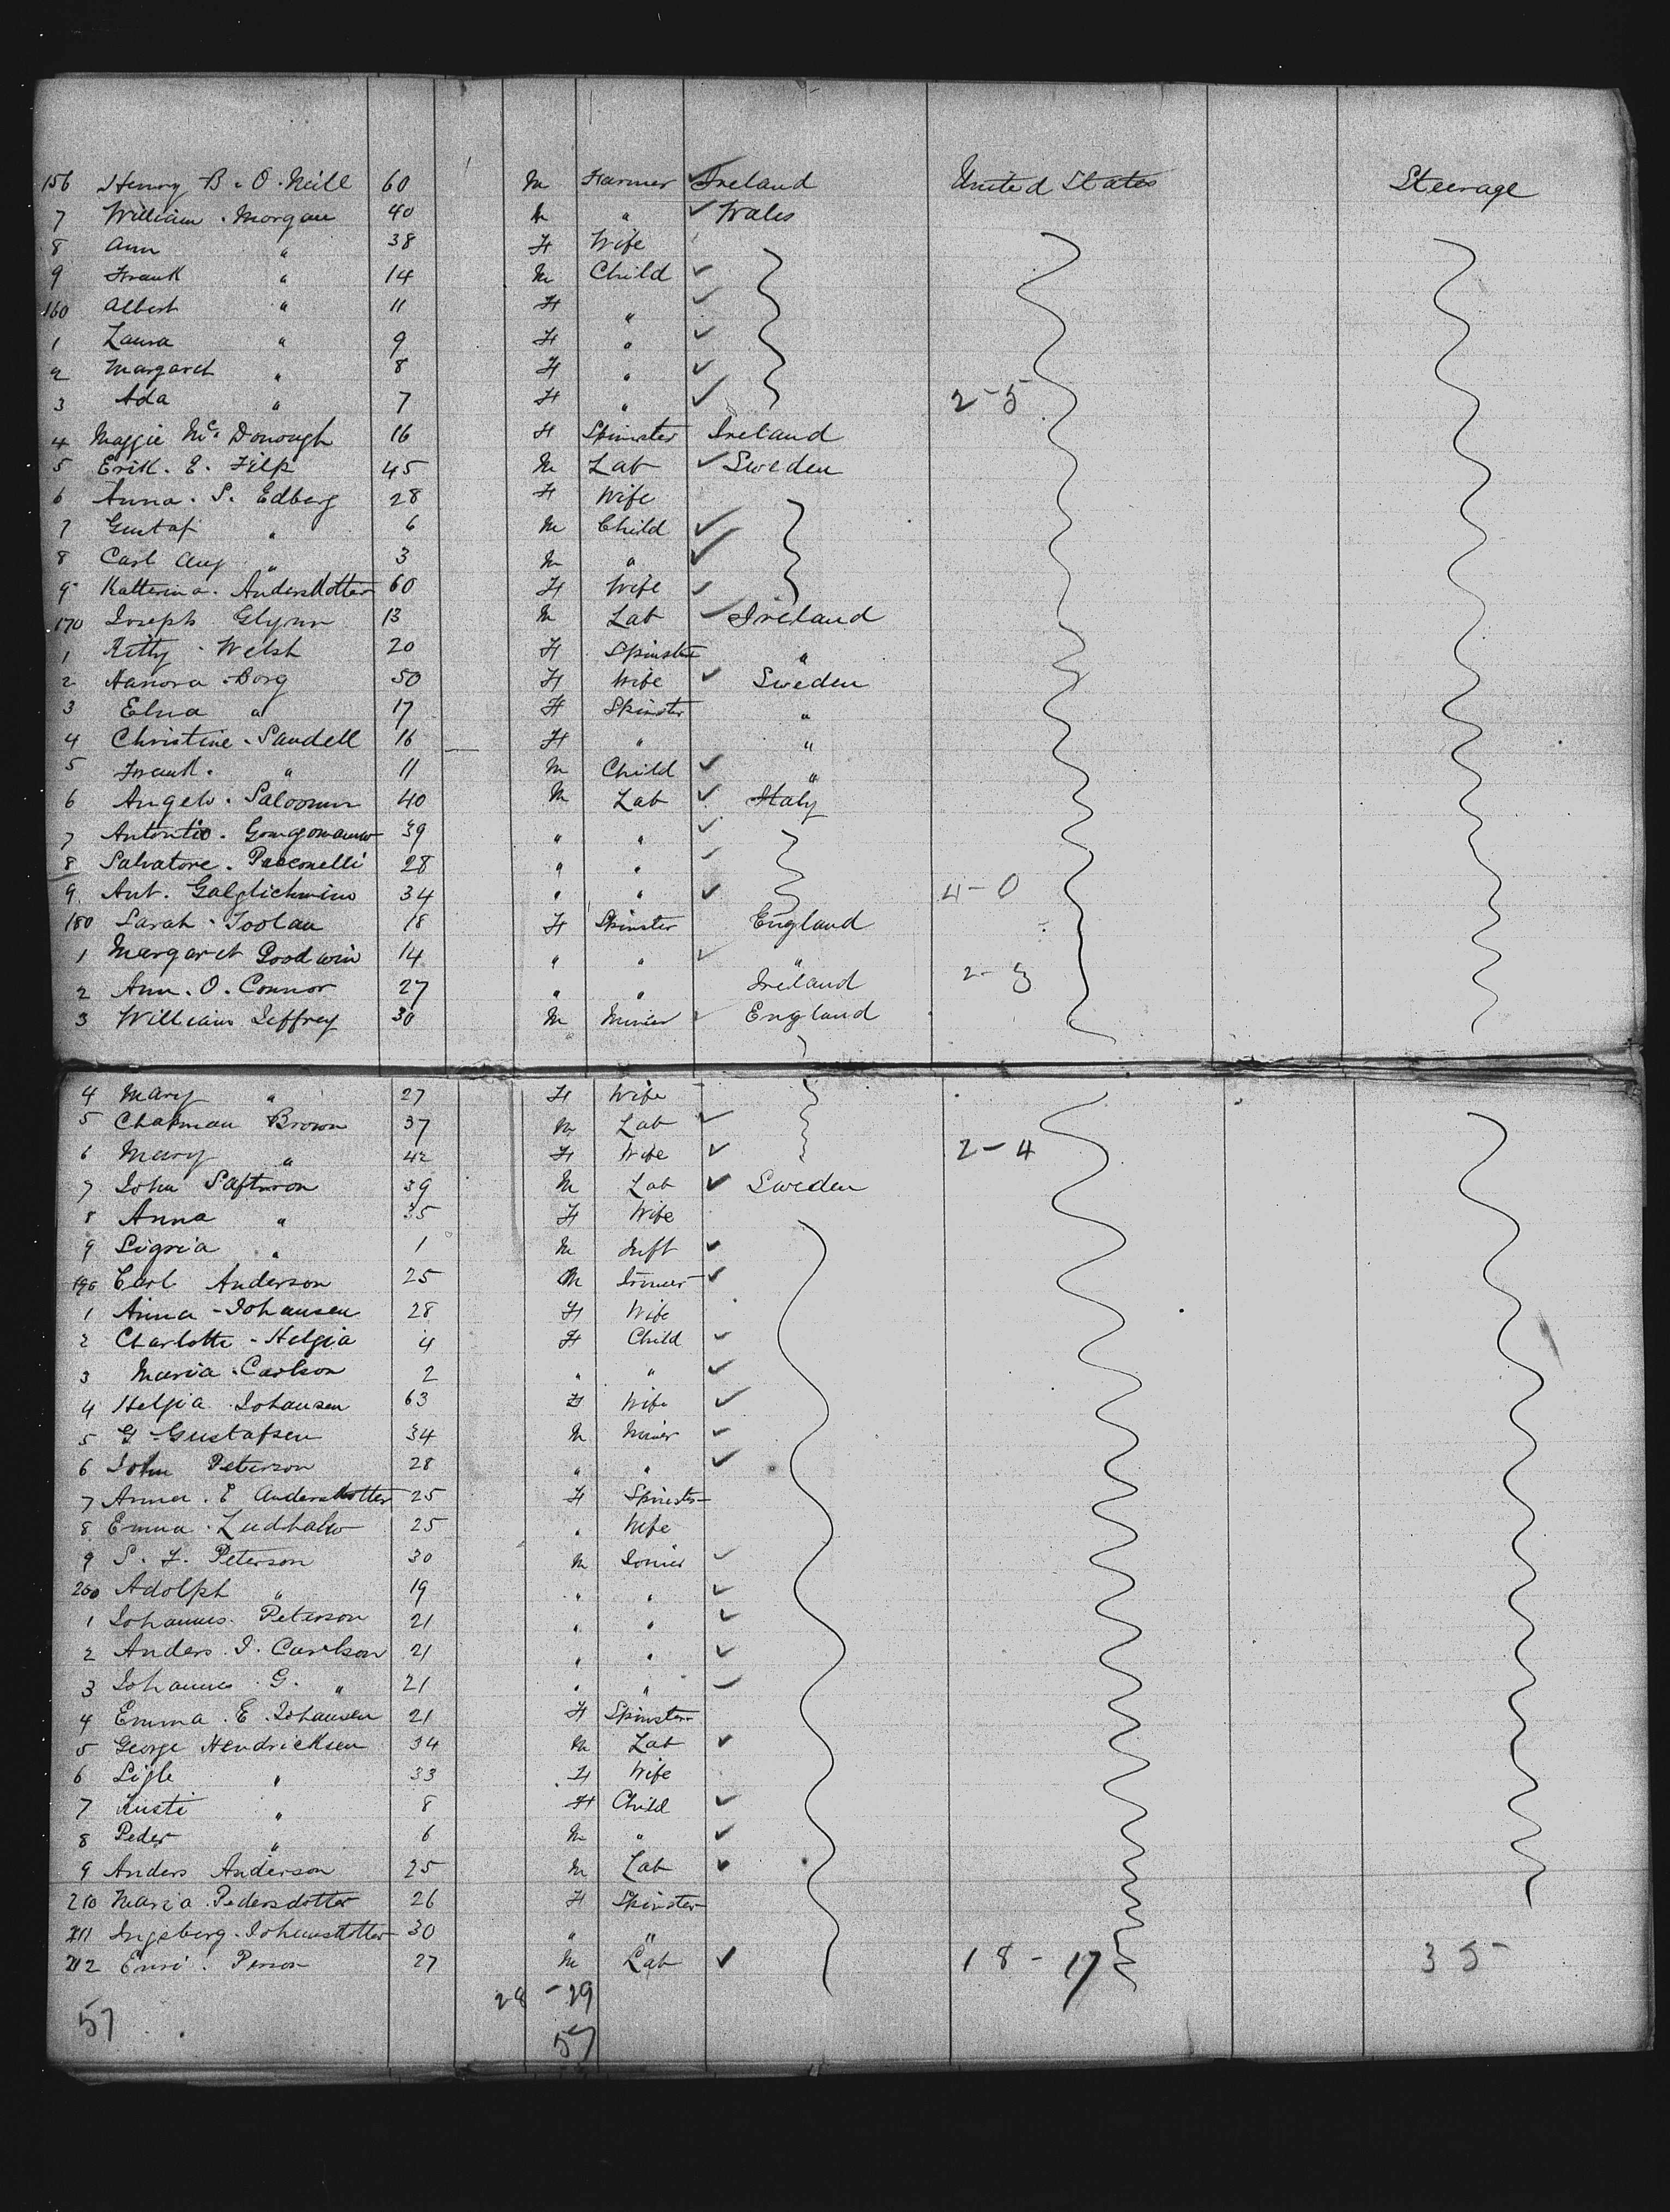 156 Henry B. O. Neill 60 M Farmer Ireland United States Steerage
7 William Morgan 40 M " Wales
8 Ann " 38 F Wife
9 Frank " 14 M Child
160 Albert " 11 F "
1 Laura " 9 F "
2 Margaret " 8 F "
3 Ada " 7 F " 2-5
4 Maggie Mc Donough 16 F Spinster Ireland
5 Erik. E. Filp 45 M Lab Sweden
6 Anna. S. Edberg 28 F Wife
7 Gustaf " 6 M Child
8 Carl Aug " 3 M "
9 Katterina. Andersdotter 60 F Wife
170 Joseph Glynn 13 M Lab Ireland
1 Kitty Welsh 20 F Spinster "
2 Hanora Borg 50 F Wife Sweden
3 Elna " 17 F Spinster "
4 Christine Sandell 16 F " "
5 Frank. " 11 M Child "
6 Angelo. 40 M Lab Italy
7 39 " "
8 Salvatore. 28 " "
9 Ant. 34 " " 4-0
180 Sarah Toolan 18 F Spinster England
1 Margaret Goodwin 14 " " "
2 Ann. O. Connor 27 " " Ireland 2-3
3 William Jeffrey 30 M Miner England
4 Mary " 27 F Wife
5 Chapman Brown 37 M Lab
6 Mary " 42 F Wife 2-4
7 John 39 M Lab Sweden
8 Anna " 35 F Wife
9 Sigria " 1 M Inft
190 Carl Anderson 25 M
1 Anna Johansen 28 F Wife
2 Charlotte Helgia 4 F Child
3 Maria Carlson 2 " "
4 Helgia Johansen 63 F Wife
5 G Gustafsen 34 M Miner
6 John Peterson 28 " "
7 Anna. E Andersdotter 25 F Spinster
8 Emma 25 " Wife
9 S. F. Peterson 30 M
200 Adolph " 19 " "
1 Johannes. Peterson 21 " "
2 Anders. J. Carlson 21 " "
3 Johannes G. " 21 " "
4 Emma. E. Johansen 21 F Spinster
5 George Hendricksen 34 M Lab
6 " 33 F Wife
7 Kusti " 8 F Child
8 Peder " 6 M "
9 Anders Anderson 25 M Lab
210 Maria Pedersdotter 26 F Spinster
211 Ingeberg. 30 " "
212 27 M Lab 18-17 35
28 - 29
57 57